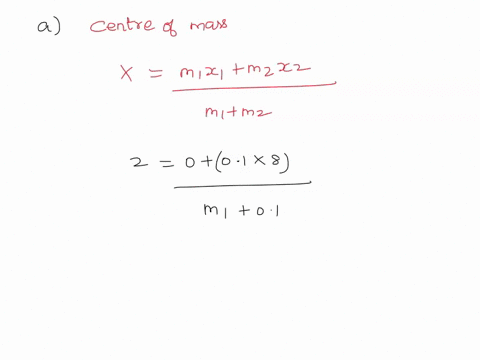 a) Centre of mass
X = m₁x₁ + m₂x₂
m₁+m₂
2 = 0+(0.1×8)
m₁ + 0.1